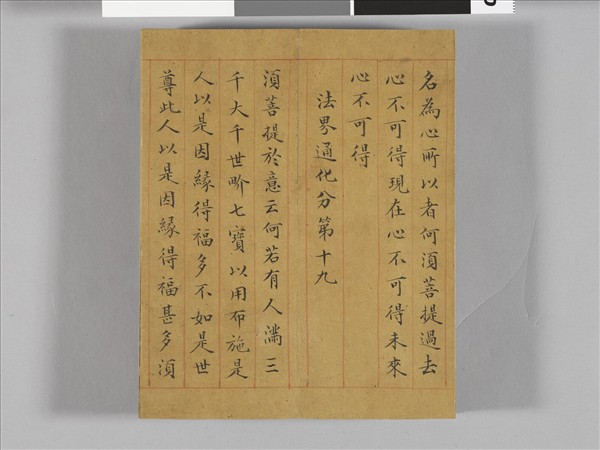 名為心所以者何須菩提過去
心不可得現在心不可得未來
心不可得
法界通化分第十九
須菩提於意云何若有人滿三
千大千世界七寶以用布施是
人以是因緣得福多不如是世
尊此人以是因緣得福甚多須